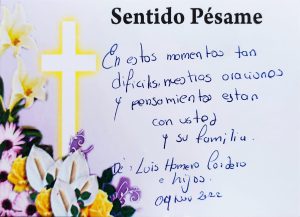 Sentido Pésame
En estos momentos tan
dificiles, nuestras oraciones
y pensamientos estan
con usted
y su familia.
De: Luis Homero
e hijos.
09 Nov 2022